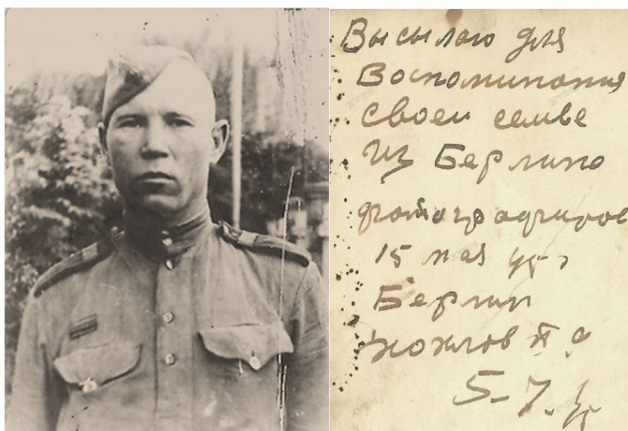 Высылаю для
Воспоминания
своеи семье
из Берлина
фотографиров
15 мая 45 г
Берлин
П
5-7.45